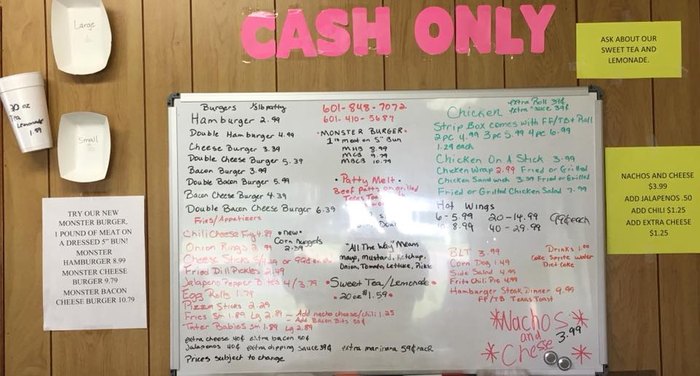 CASH ONLY
Large
Small
20 oz
Tea
Lemonade
1.99
ASK ABOUT OUR
SWEET TEA AND
LEMONADE.
NACHOS AND CHEESE
$3.99
ADD JALAPENOS .50
ADD CHILI $1.25
ADD EXTRA CHEESE
$1.25
TRY OUR NEW
MONSTER BURGER.
1 POUND OF MEAT ON
A DRESSED 5" BUN!
MONSTER
HAMBURGER 8.99
MONSTER CHEESE
BURGER 9.79
MONSTER BACON
CHEESE BURGER 10.79
Burgers 1/3 lb patty
Hamburger 2.99
Double Hamburger 4.99
Cheese Burger 3.39
Double Cheese Burger 5.39
Bacon Burger 3.99
Double Bacon Burger 5.99
Bacon Cheese Burger 4.39
Double Bacon Cheese Burger 6.39
Fries/Appetizers
Chili Cheese Fry 4.89
Onion Rings
Cheese Sticks
Fried Dill Pickles 2.99
Jalapeno Pepper Bites 4/3.79
Egg Rolls 1.79
Pizza Sticks 2.29
Fries Sm 1.89 Lg 2.89 - Add nacho cheese/chili 1.25
- Add Bacon Bits 50¢
Tater Babies Sm 1.89 Lg 2.89
extra cheese 40¢ extra bacon 50¢
Jalapenos 40¢ extra dipping sauce 39¢ extra marinara 59¢ each
Prices subject to change
• new •
Corn Nuggets
601-848-7072
601-410-5687
• MONSTER BURGER •
1# meat on 5" Bun
MHB 8.99
MCB 9.79
MBCB 10.79
• Patty Melt •
Beef patty on grilled
Texas Toast
"All The Way" Means
Mayo, Mustard, Ketchup,
Onion, Tomato, Lettuce, Pickle
• Sweet Tea/Lemonade •
• 20 oz $1.59 •
Chicken
extra Roll 39¢
extra sauce 39¢
Strip Box comes with FF/TB + Roll
2pc 4.99 3pc 5.99 4pc 6.99
1.29 each
Chicken On A Stick 3.99
Chicken Wrap 2.99 Fried or Grilled
Chicken Sandwich 3.99 Fried or Grilled
Fried or Grilled Chicken Salad 7.99
Hot Wings
6 - 5.99 20 - 14.99
10 8.99 40 - 29.99
BLT 3.99
Corn Dog 1.49
Side Salad 4.99
Frito Chili Pie 4.99
Hamburger Steak Dinner 9.99
FF/TB Texas Toast
Drinks 1.00
Coke Sprite Water
Diet Coke
Nachos
and
Cheese
3.99